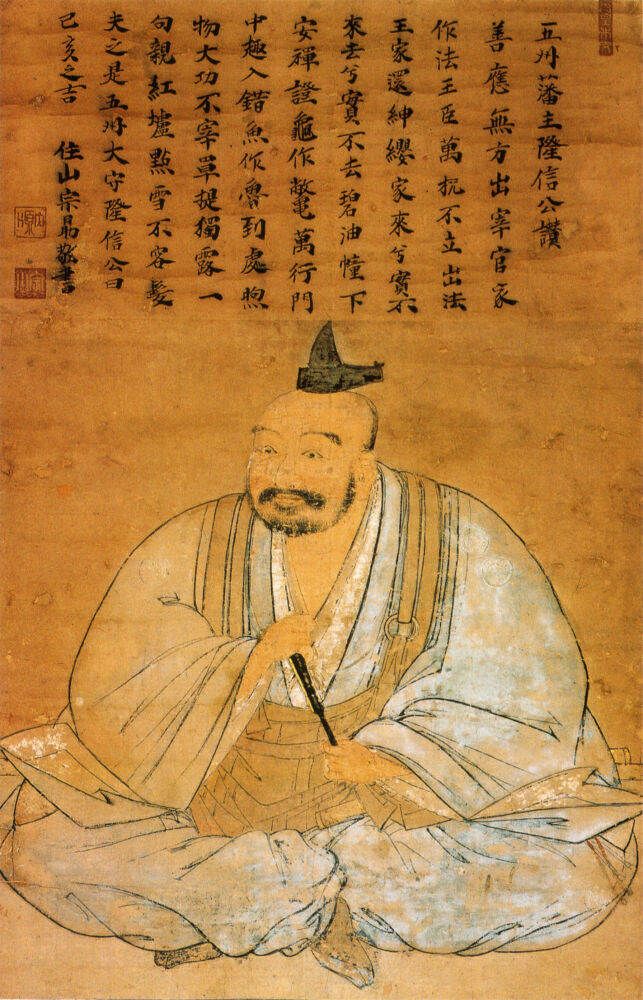 五州藩主隆信公讃
善應無方出宰官家
作法王臣萬机不立出法
王家還紳纓家來兮實不
來去兮實不去碧油幢下
安禪證龜作鼈萬行門
中趣入錯魚作魯到處煦
物大功不宰單提獨露一
句親紅壚點雪不容髮
夫之是五州大守隆信公曰
己亥之吉 住山宗昜敬書